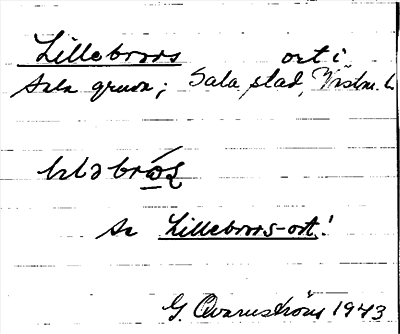 Lillebrors ort i
Sala gruva; Sala stad, Västm. l.
Se Lillebrors-ort!
G. Qvarnström 1943